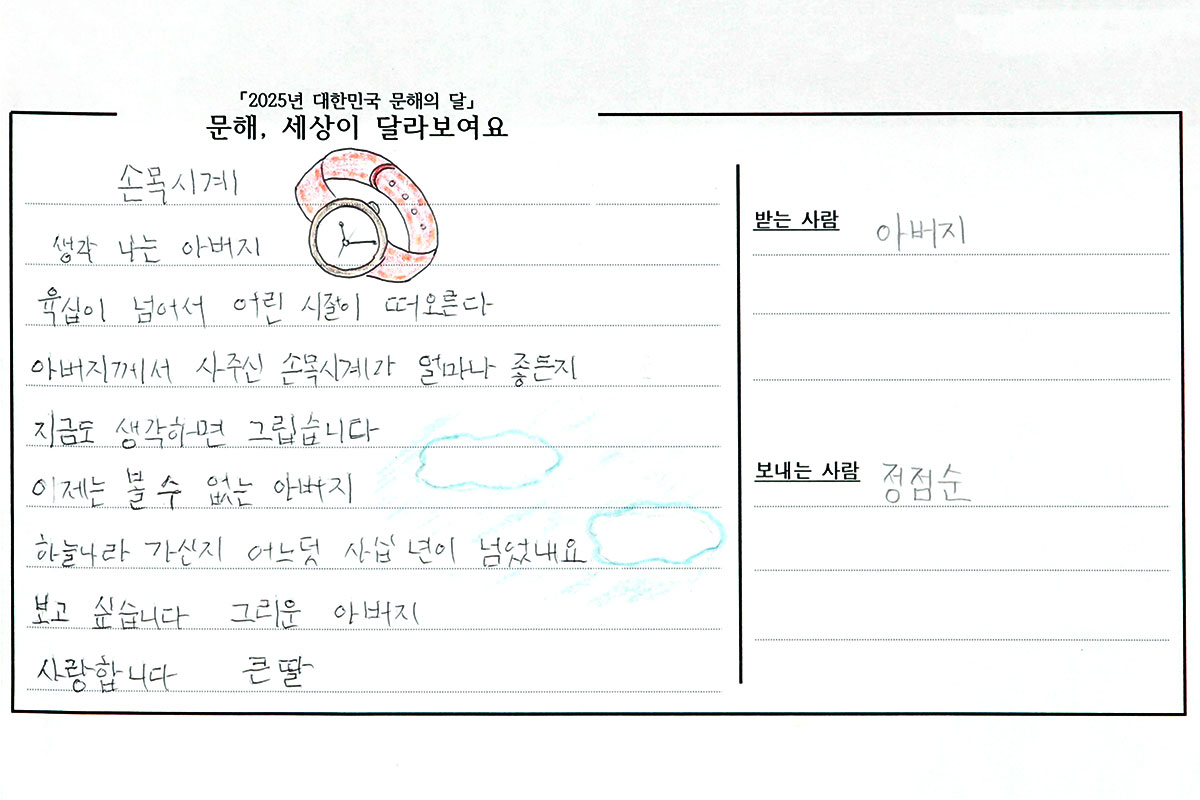 「2025년 대한민국 문해의 달」
문해, 세상이 달라보여요
손목시계
생각 나는 아버지
육십이 넘어서 어린 시절이 떠오른다
아버지께서 사주신 손목시계가 얼마나 좋든지
지금도 생각하면 그립습니다
이제는 볼 수 없는 아버지
하늘나라 가신지 어느덧 사십 년이 넘었내요
보고 싶습니다 그리운 아버지
사랑합니다 큰딸
받는 사람 아버지
보내는 사람 정점순